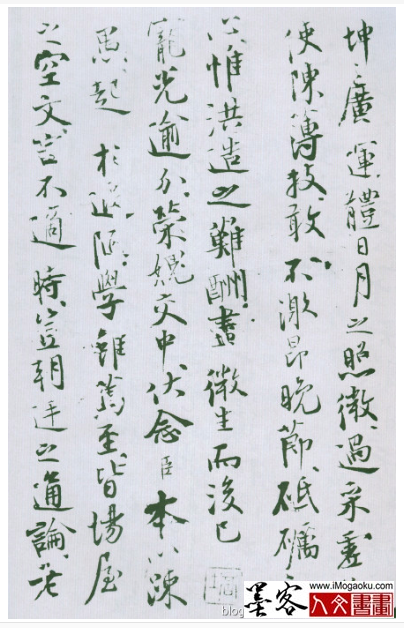 坤之廣運體日月之照微過采虛
使陳薄技敢不激昂晚節砥礪
心惟洪造之難酬盡微生而後已
寵光逾分榮媿交中伏念臣本以陳
愚起於陋學雖篤至皆場屋
之空文言不適時豈朝廷之通論老
墨客
www.iMogaoku.com
人文書畫
blog